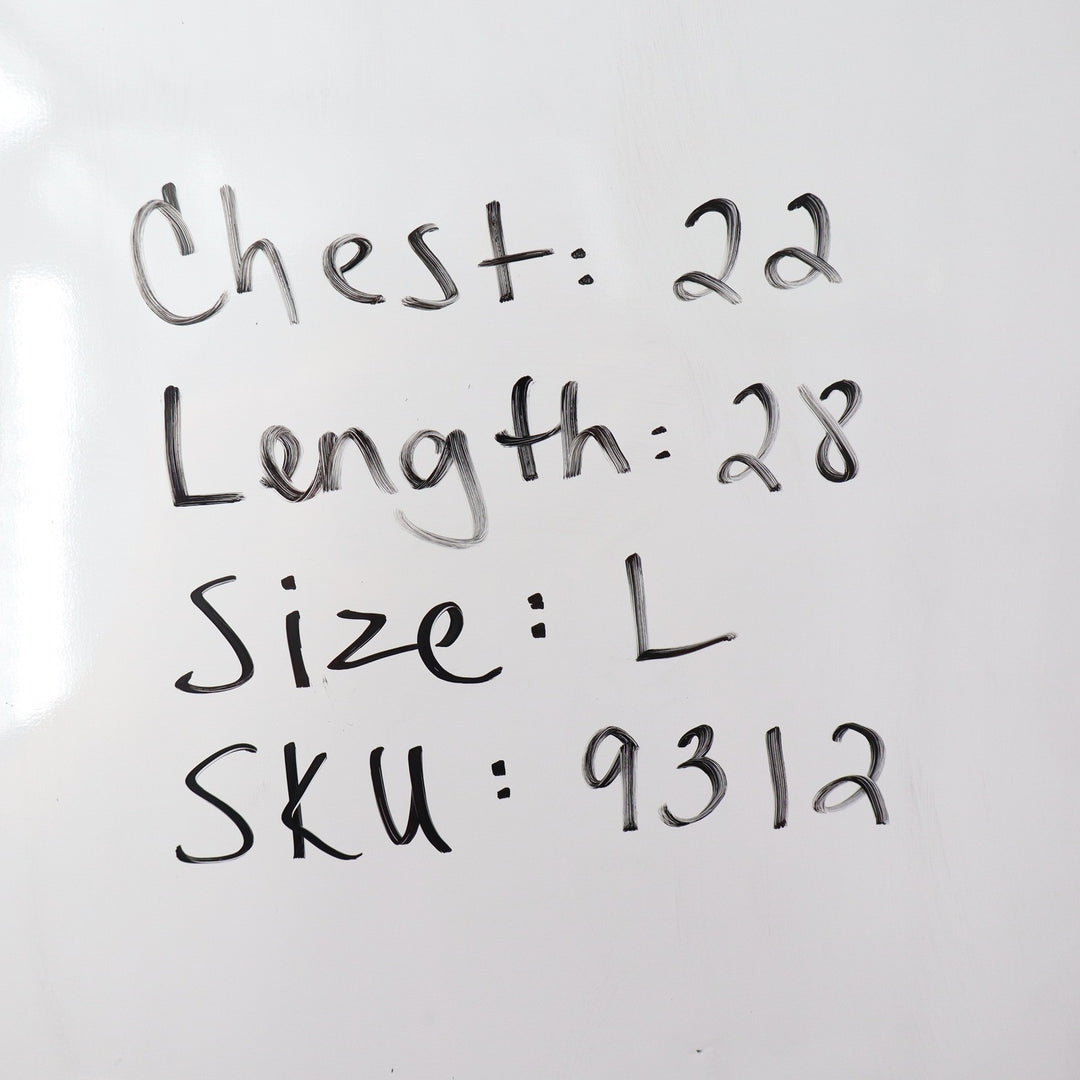 Chest: 22
Length: 28
Size: L
SKU: 9312